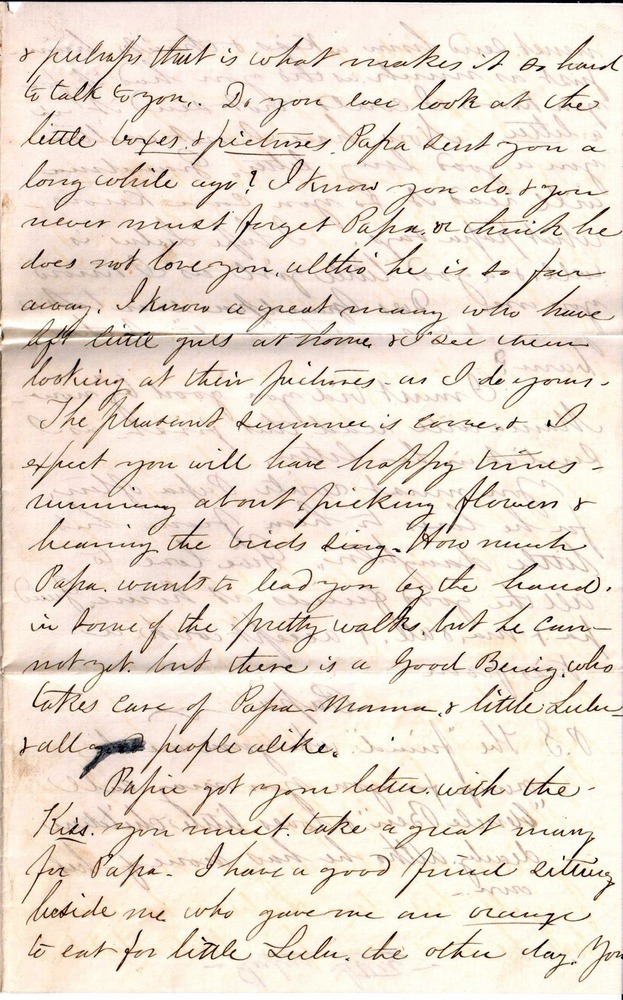 & perhaps that is what makes it so hard
to talk to you. Do you ever look at the
little boxes & pictures Papa sent you a
long while ago? I know you do & you
never must forget Papa or think he
does not love you, altho he is so far
away. I know a great many who have
left little girls at home & I see them
looking at their pictures - as I do yours -
The pleasant summer is come & I
expect you will have happy times -
running about, picking flowers &
hearing the birds sing. How much
Papa wants to lead you by the hand.
in some of the pretty walks, but he can-
not yet. but there is a Good Being, who
takes care of Papa Mama, & little Lulu
& all people alike.
Papa got your letter with the
Kiss. you must take a great many
for Papa - I have a good friend sitting
beside me who gave me an orange
to eat for little Lulu, the other day. You